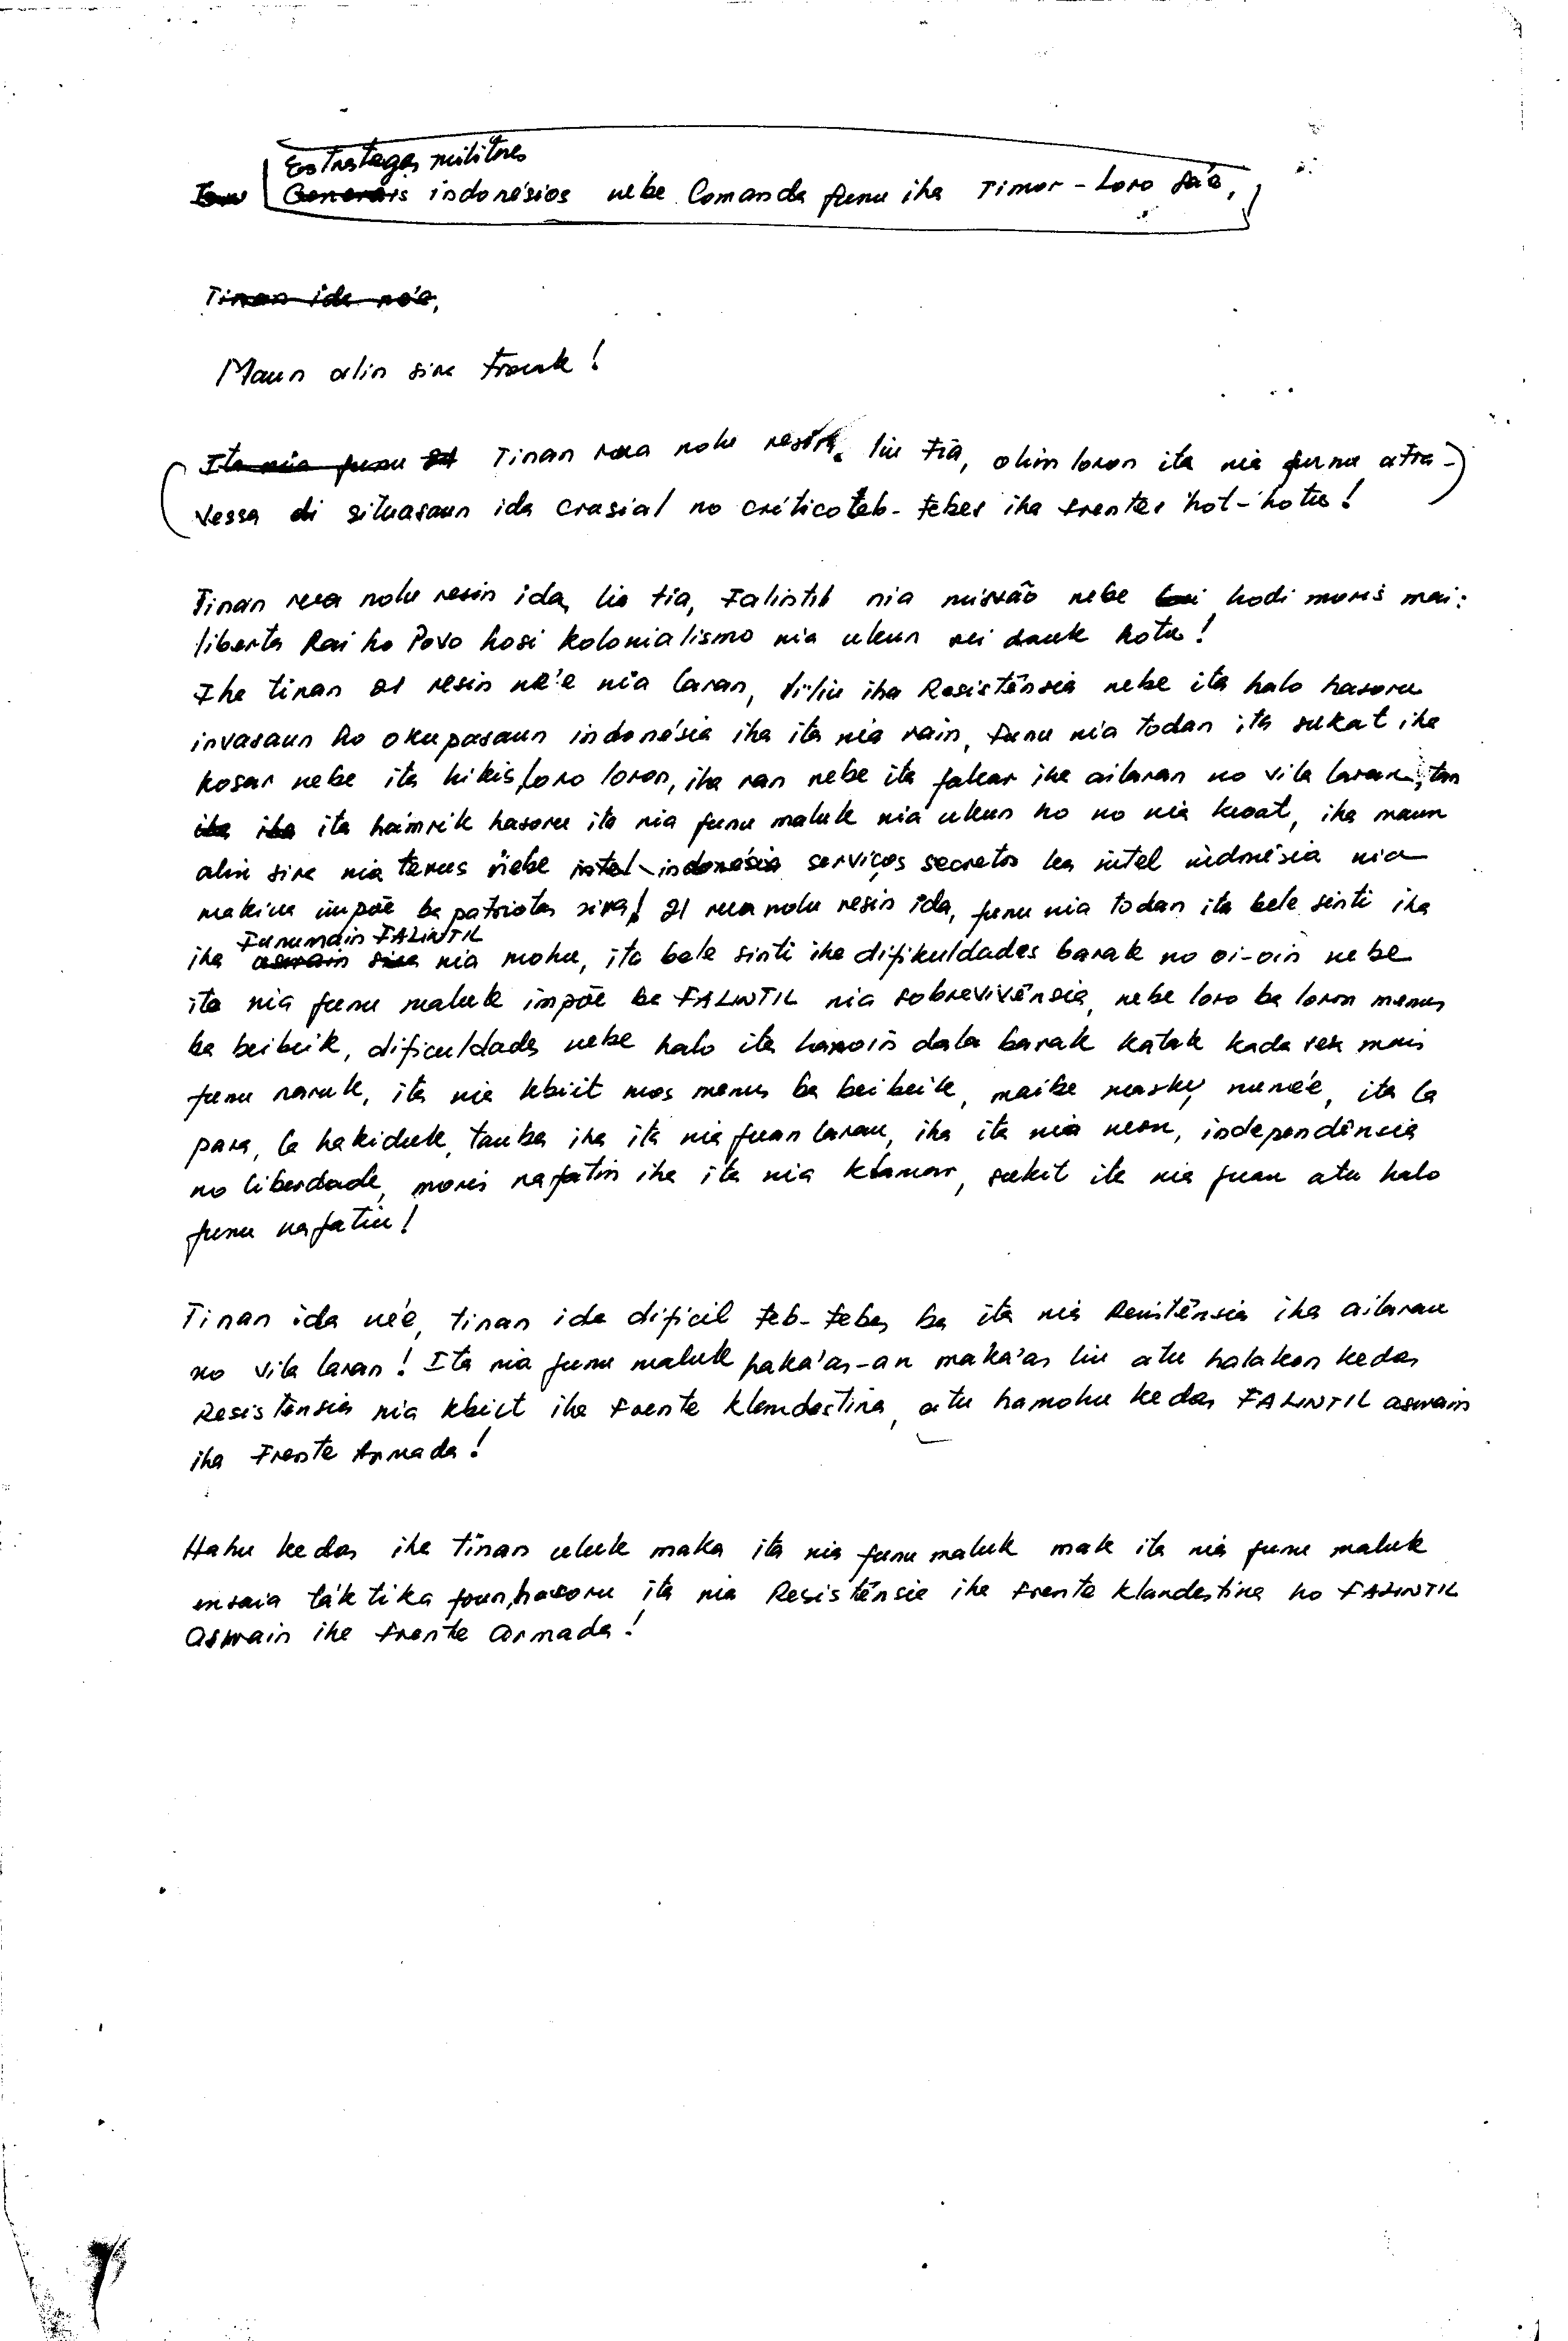 Estrategas militares
Generais indonésios nebe Comanda funu iha Timor-Loro Sa'e,
Tinan ida ne'e,
Maun alin sira tomak!
Ita nia funu 21 Tinan rua nolu resin liu tia, ohin loron ita nia funu atra-
vessa di situasaun ida crasial no crítico teb-tebes iha frentes hot-hotu!
Tinan rua nolu resin ida, liu tia, Falintil nia missão nebe hodi moris mai:
liberta Rai ho Povo hosi kolonialismo nia ukun sei dauk hotu!
Iha tinan 21 resin ne'e nia laran, liliu iha Resistênsia nebe ita halo hasoru
invasaun ho okupasaun indonésia iha ita nia rain, funu nia todan ita sukat iha
kosar nebe ita hikis, loro loron, iha ran nebe ita fakar iha ailaran no vila laran, tan
iha iha ita hamrik hasoru ita nia funu maluk nia ukun ho no nia kroat, iha maun
alin sira nia terus nebe intel indonésia serviços secretos ka intel indonésia nia
makina impõe ba patriotas sira! 21 rua nolu resin ida, funu nia todan ita bele sinti iha
Funumain FALINTIL
iha aswain sira nia mohu, ita bele sinti iha difikuldades barak no oi-oin nebe
ita nia funu maluk impõe ba FALINTIL nia sobrevivênsia, nebe loro ba loron menus
ba beibeik, dificuldades nebe halo ita hanoin dala barak katak kada ves mais
funu naruk, ita nia kbiit mos menus ba beibeik, maibe maski nune'e, ita la
para, la hakiduk, tauba iha ita nia fuan laran, iha ita nia neon, independência
no liberdade, moris nafatin iha ita nia klamar, sukit ita nia fuan atu halo
funu nafatin!
Tinan ida ne'e, tinan ida difícil teb-tebes ba ita nia Resistênsia iha ailaran
no vila laran! Ita nia funu maluk haka'as-an maka'as liu atu halakon kedas
Resistênsia nia kbiit iha frente klandestina, atu hamohu kedas FALINTIL aswain
iha Frente Armada!
Hahu kedas iha tinan uluk maka ita nia funu maluk mak ita nia funu maluk
ensaia táktika foun, hasoru ita nia Resistênsia iha frente klandestina ho FALINTIL
Aswain iha frente Armada!